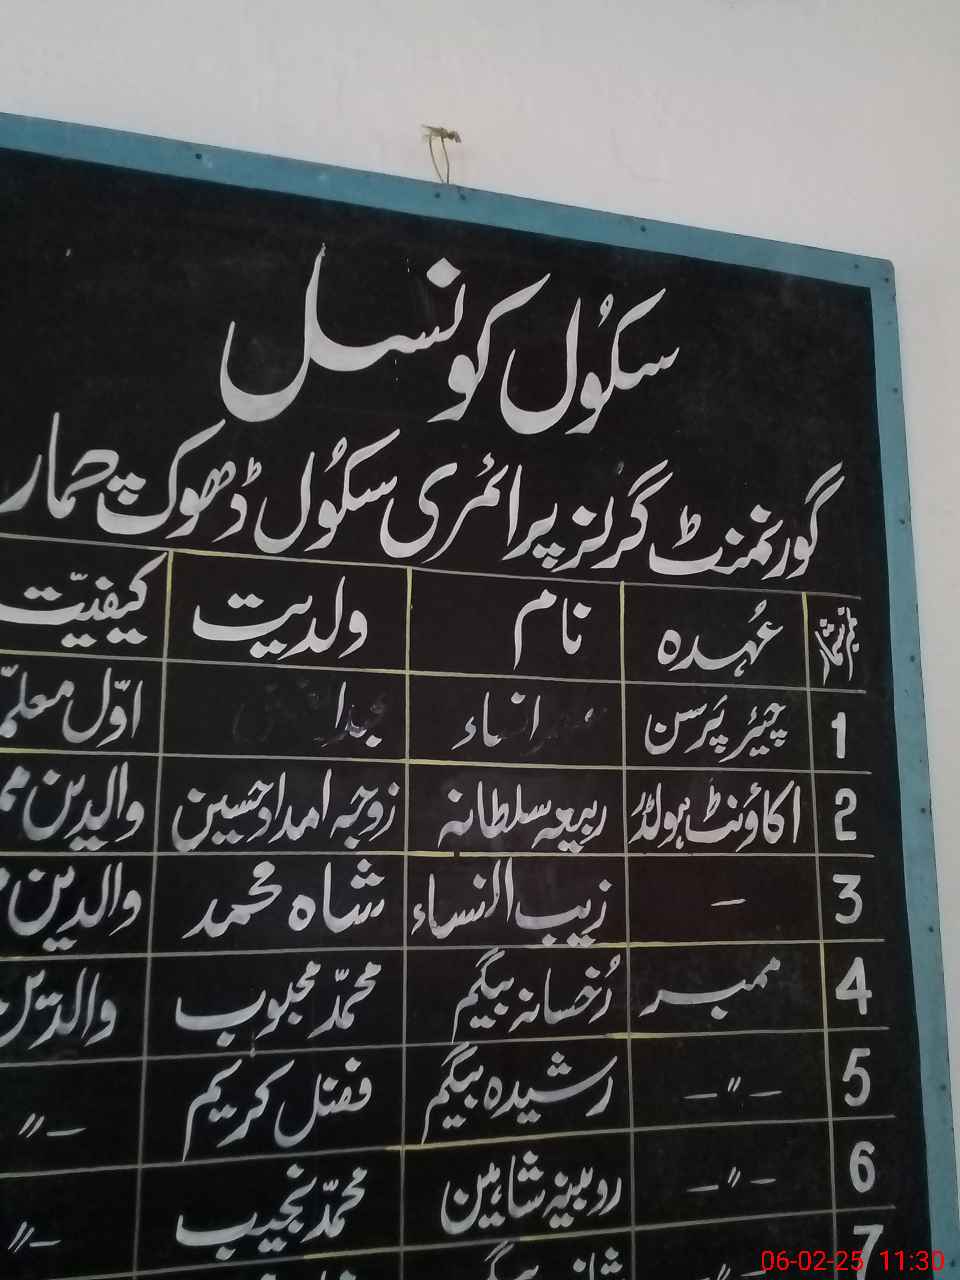 سکُول کونسل
گورنمنٹ گرلز پرائمری سکُول ڈھوک چمار
نمبر شمار عُہدہ نام ولدیت کیفیّت
1 چیئر پَرسن النساء عبدا اوّل معلمّ
2 اکاؤنٹ ہولڈر ربیعہ سلطانہ زوجہ امداد حسین والدین
3 – زیب النساء شاہ محمد والدین
4 ممبر رُخسانہ بیگم محمّد محبوب والدین
5 –〃– رشیدہ بیگم فضل کریم –〃
6 –〃– روبینہ شاہین محمّد نجیب –〃
7 بیگم
06-02-25 11:30